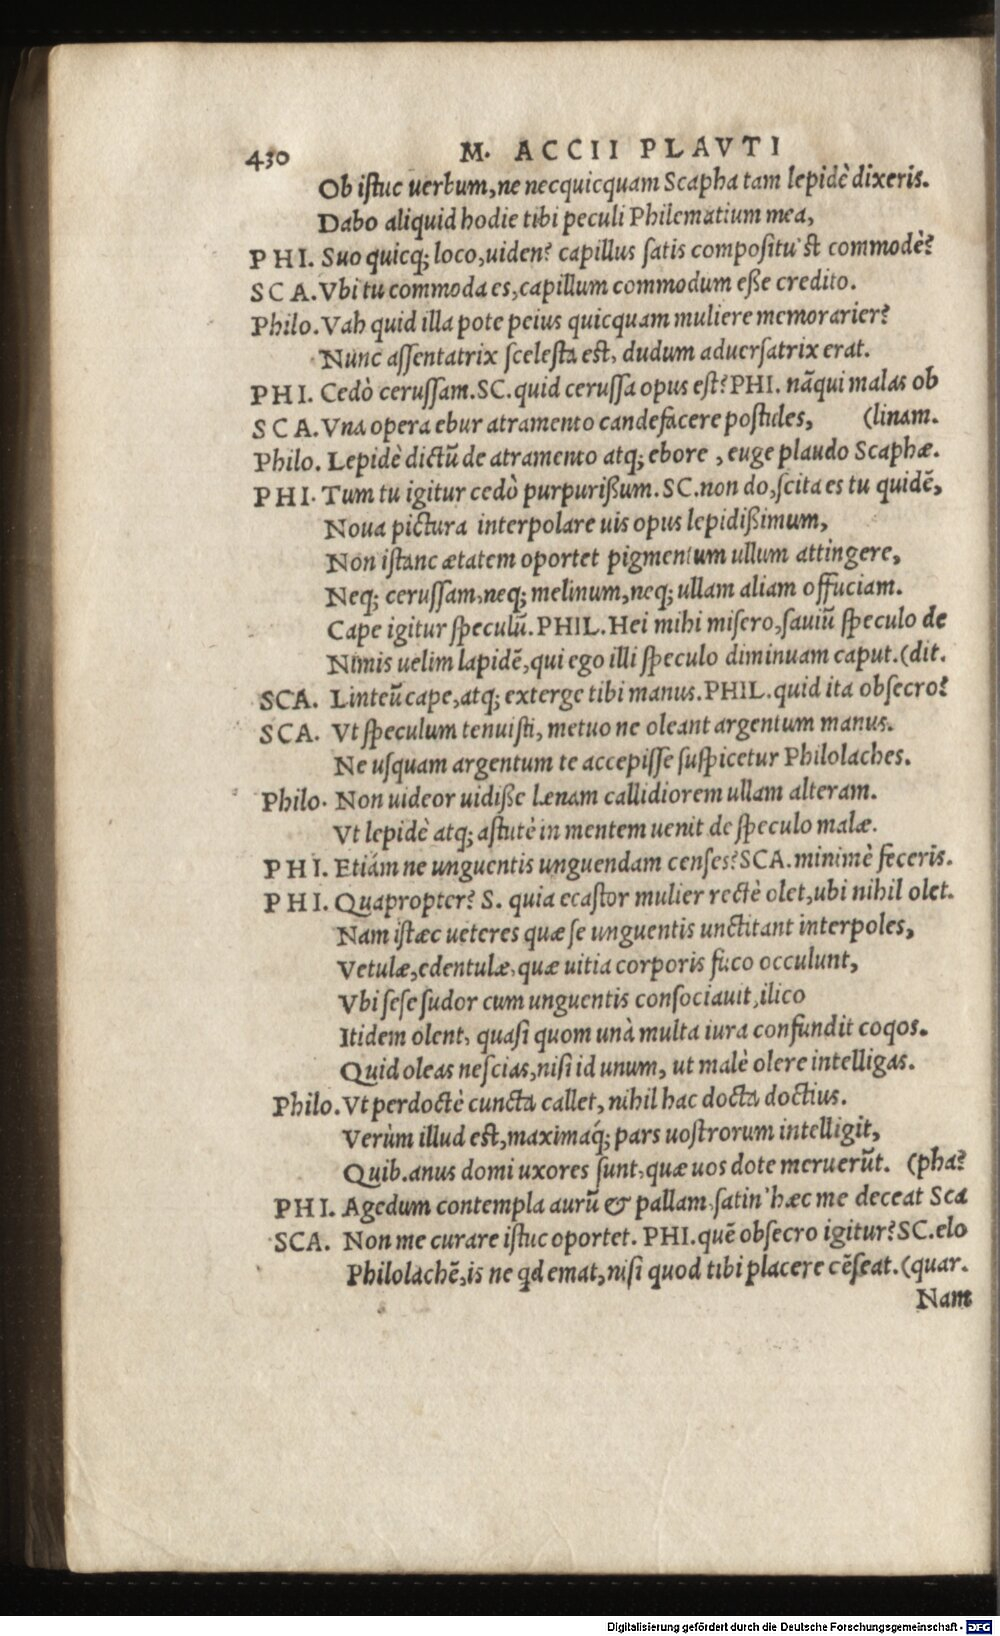 430 M. ACCII PLAVTI
Ob istuc uerbum, ne necquicquam Scapha tam lepidè dixeris.
Dabo aliquid hodie tibi peculi Philematium mea,
PHI. Suo quicq; loco, uiden? capillus satis compositu'st commodè?
SCA. Vbi tu commoda es, capillum commodum eße credito.
Philo. Vah quid illa pote peius quicquam muliere memorarier?
Nunc assentatrix scelesta est, dudum aduersatrix erat.
PHI. Cedò cerussam. SC. quid cerussa opus est? PHI. nãqui malas ob
SCA. Vna opera ebur atramento candefacere postules, (linam.
Philo. Lepidè dictũ de atramento atq; ebore , euge plaudo Scaphæ.
PHI. Tum tu igitur cedò purpurißum. SC. non do, scita es tu quidẽ,
Noua pictura interpolare uis opus lepidißimum,
Non istanc ætatem oportet pigmentum ullum attingere,
Neq; cerussam, neq; melinum, neq; ullam aliam offuciam.
Cape igitur speculũ. PHIL. Hei mihi misero, sauiũ speculo de
Nimis uelim lapidẽ, qui ego illi speculo diminuam caput. (dit.
SCA. Linteũ cape, atq; exterge tibi manus. PHIL. quid ita obsecro?
SCA. Vt speculum tenuisti, metuo ne oleant argentum manus.
Ne usquam argentum te accepisse suspicetur Philolaches.
Philo. Non uideor uidiße lænam callidiorem ullam alteram.
Vt lepidè atq; astutè in mentem uenit de speculo malæ.
PHI. Etiám ne unguentis unguendam censes? SCA. minimè feceris.
PHI. Quapropter? S. quia ecastor mulier rectè olet, ubi nihil olet.
Nam istæc ueteres quæ se unguentis unctitant interpoles,
Vetulæ, edentulæ, quæ uitia corporis fuco occulunt,
Vbi sese sudor cum unguentis consociauit, ilico
Itidem olent, quasi quom unà multa iura confundit coqos.
Quid oleas nescias, nisi id unum, ut malè olere intelligas.
Philo. Vt perdoctè cuncta callet, nihil hac docta doctius.
Verùm illud est, maximaq́; pars uostrorum intelligit,
Quib. anus domi uxores sunt, quæ uos dote meruerũt. (pha?
PHI. Agedum contempla aurũ & pallam, satin' hæc me deceat Sca
SCA. Non me curare istuc oportet. PHI. quẽ obsecro igitur? SC. elo
Philolachẽ, is ne qd emat, nisi quod tibi placere cẽseat. (quar.
Nam
Digitalisierung gefördert durch die Deutsche Forschungsgemeinschaft - DFG